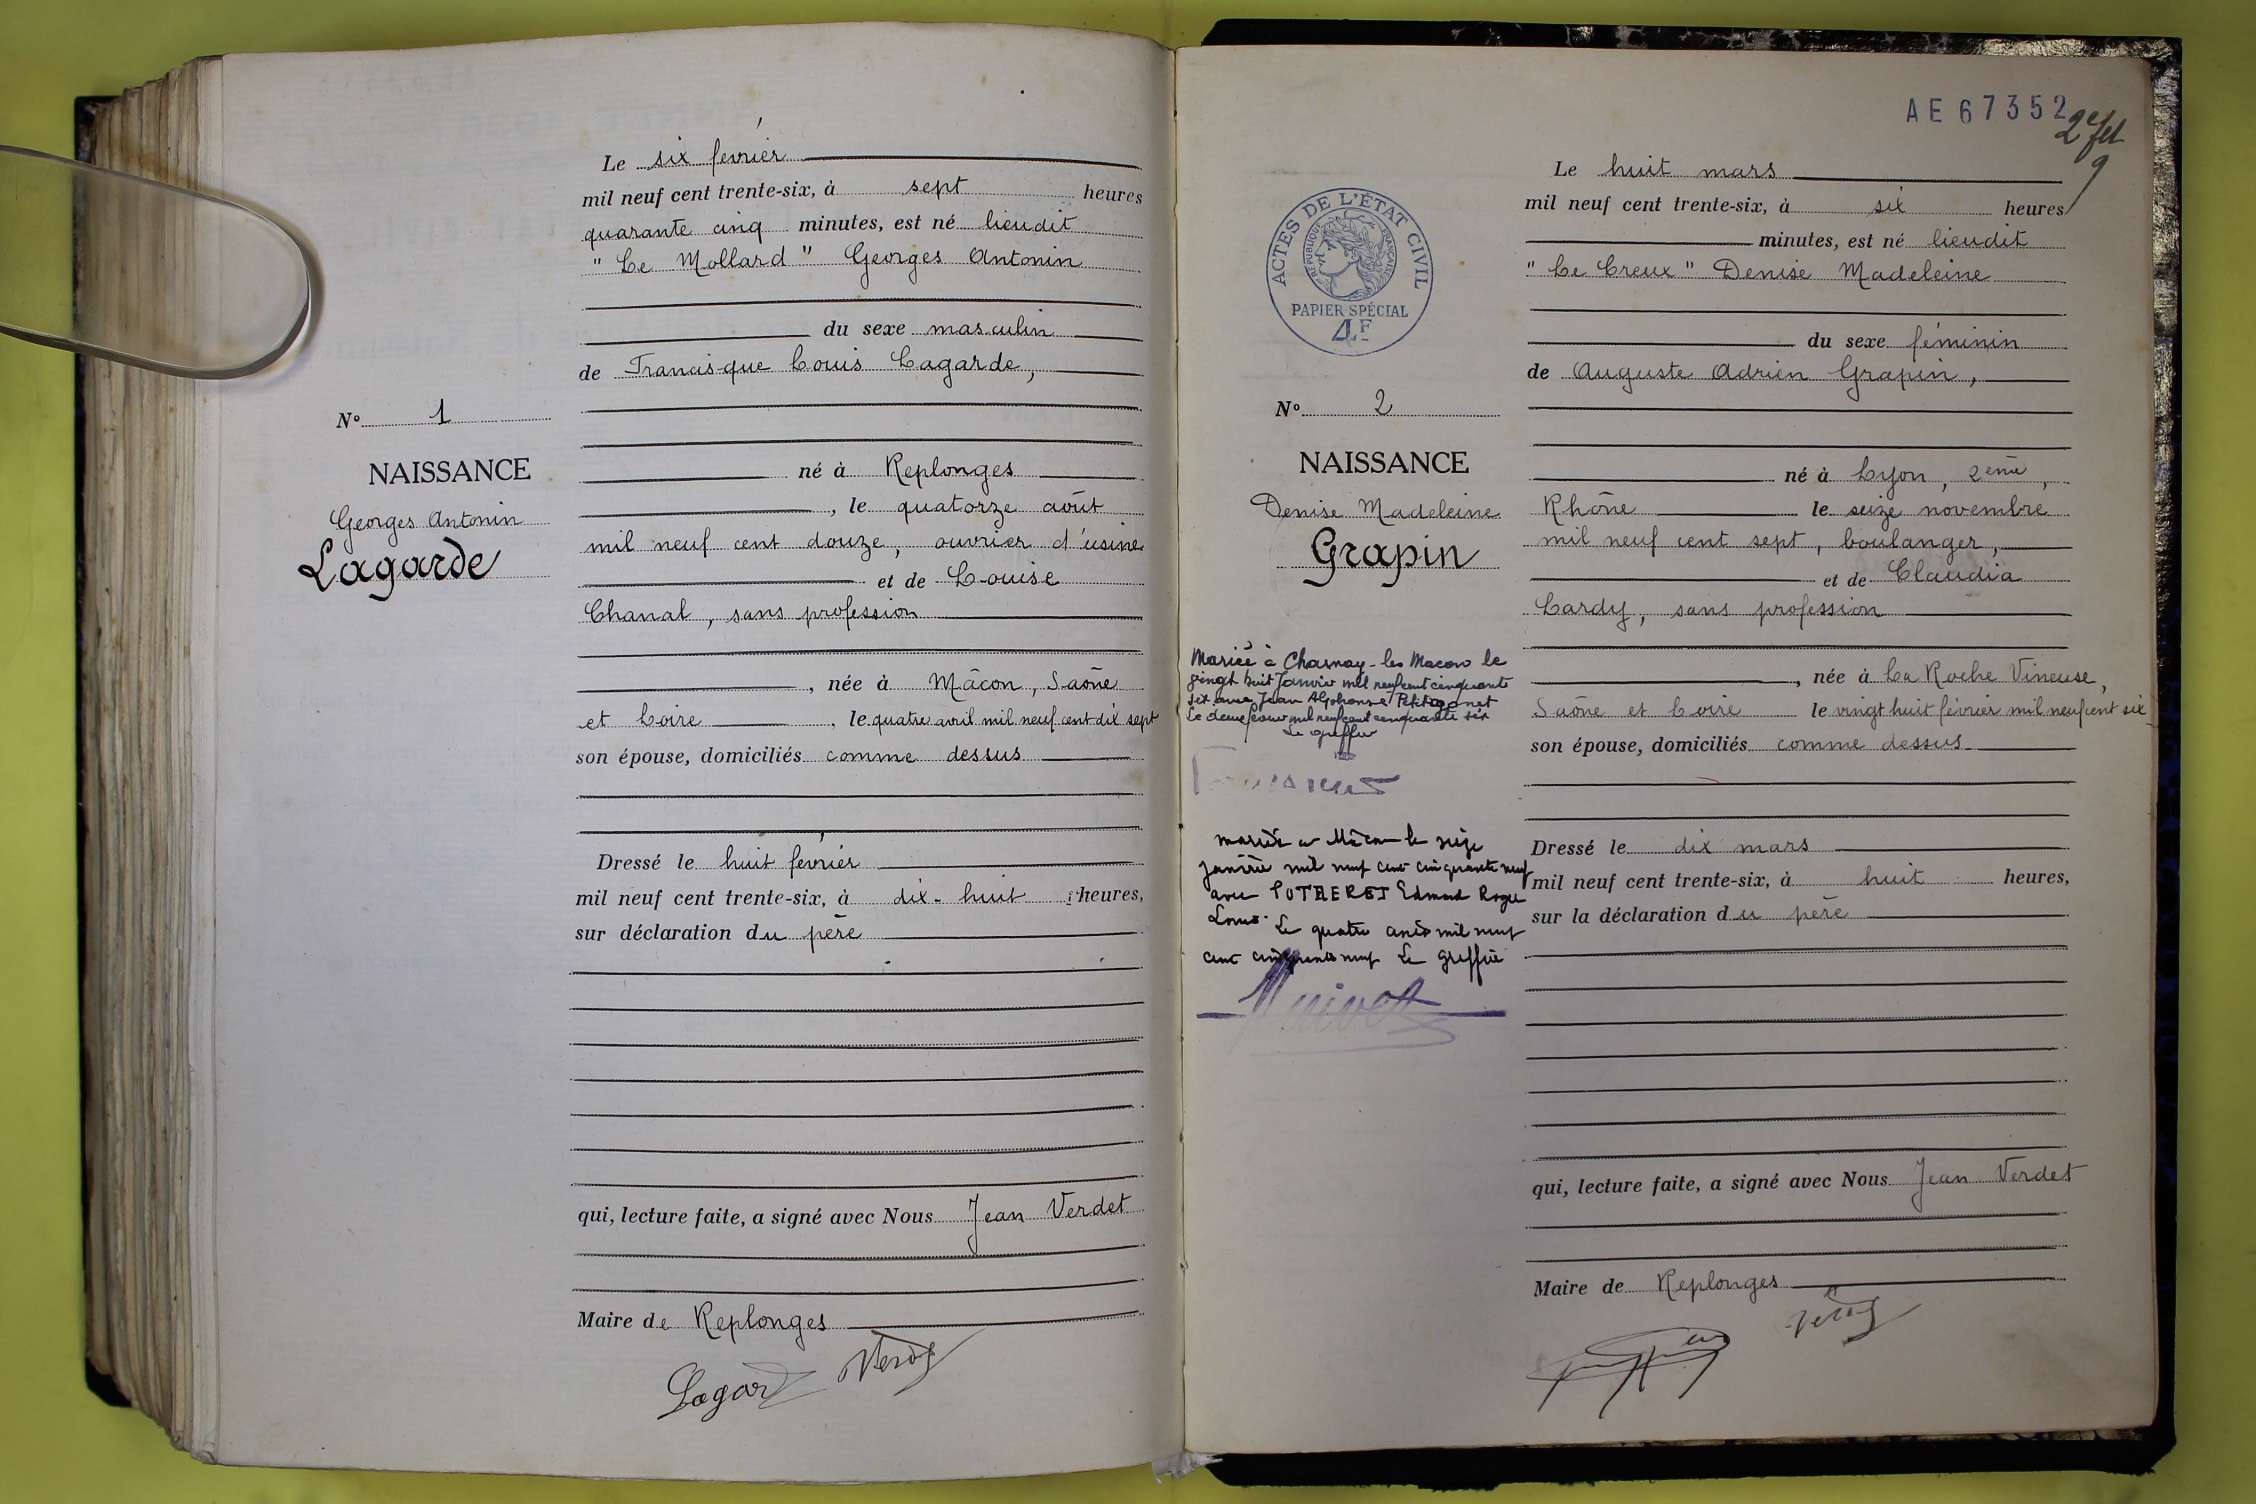 Le six février
mil neuf cent trente-six, à sept heures
quarante cinq minutes, est né lieudit
"Le Mollard" Georges Antonin
du sexe masculin
de Francisque Louis Lagarde,
né à Replonges
, le quatorze août
mil neuf cent douze, ouvrier d'usine
et de Louise
Chanal, sans profession
, née à Mâcon, Saône
et Loire , le quatre avril mil neuf cent dix sept
son épouse, domiciliés comme dessus
Dressé le huit février
mil neuf cent trente-six, à dix-huit heures,
sur déclaration du père
qui, lecture faite, a signé avec Nous Jean Verdet
Maire de Replonges
Lagarde
N° 1
NAISSANCE
Georges Antonin
Lagarde
AE 67352
2e
9
ACTES DE L'ÉTAT CIVIL
RÉPUBLIQUE FRANÇAISE
PAPIER SPÉCIAL
4F
N° 2
NAISSANCE
Denise Madeleine
Grapin
Mariée à Charnay-les Macon le
vingt huit Janvier mil neuf cent cinquante
six avec Jean Alphonse
Le deux février mil neuf cent cinquante six
Le greffier
mariée à Mâcon le seize
janvier mil neuf cent cinquante neuf
avec POTHERET Edmond Roger
Louis. Le quatre mil neuf
cent cinquante neuf Le Greffier
Le huit mars
mil neuf cent trente-six, à six heures
minutes, est né lieudit
"Le Creux" Denise Madeleine
du sexe féminin
de Auguste Adrien Grapin,
né à Lyon, 2ème,
Rhône le seize novembre
mil neuf cent sept, boulanger,
et de Claudia
Lardy, sans profession
, née à La Roche Vineuse,
Saône et Loire le vingt huit février mil neuf cent six
son épouse, domiciliés comme dessus
Dressé le dix mars
mil neuf cent trente-six, à huit heures,
sur la déclaration du père
qui, lecture faite, a signé avec Nous Jean Verdet
Maire de Replonges